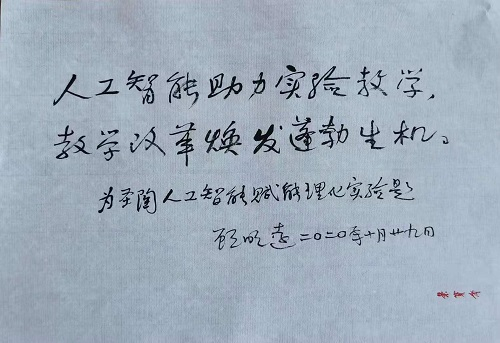 人工智能助力实验教学，
教学改革焕发蓬勃生机。
为圣陶人工智能赋能理化实验题
顾明远二〇二〇年十月廿九日